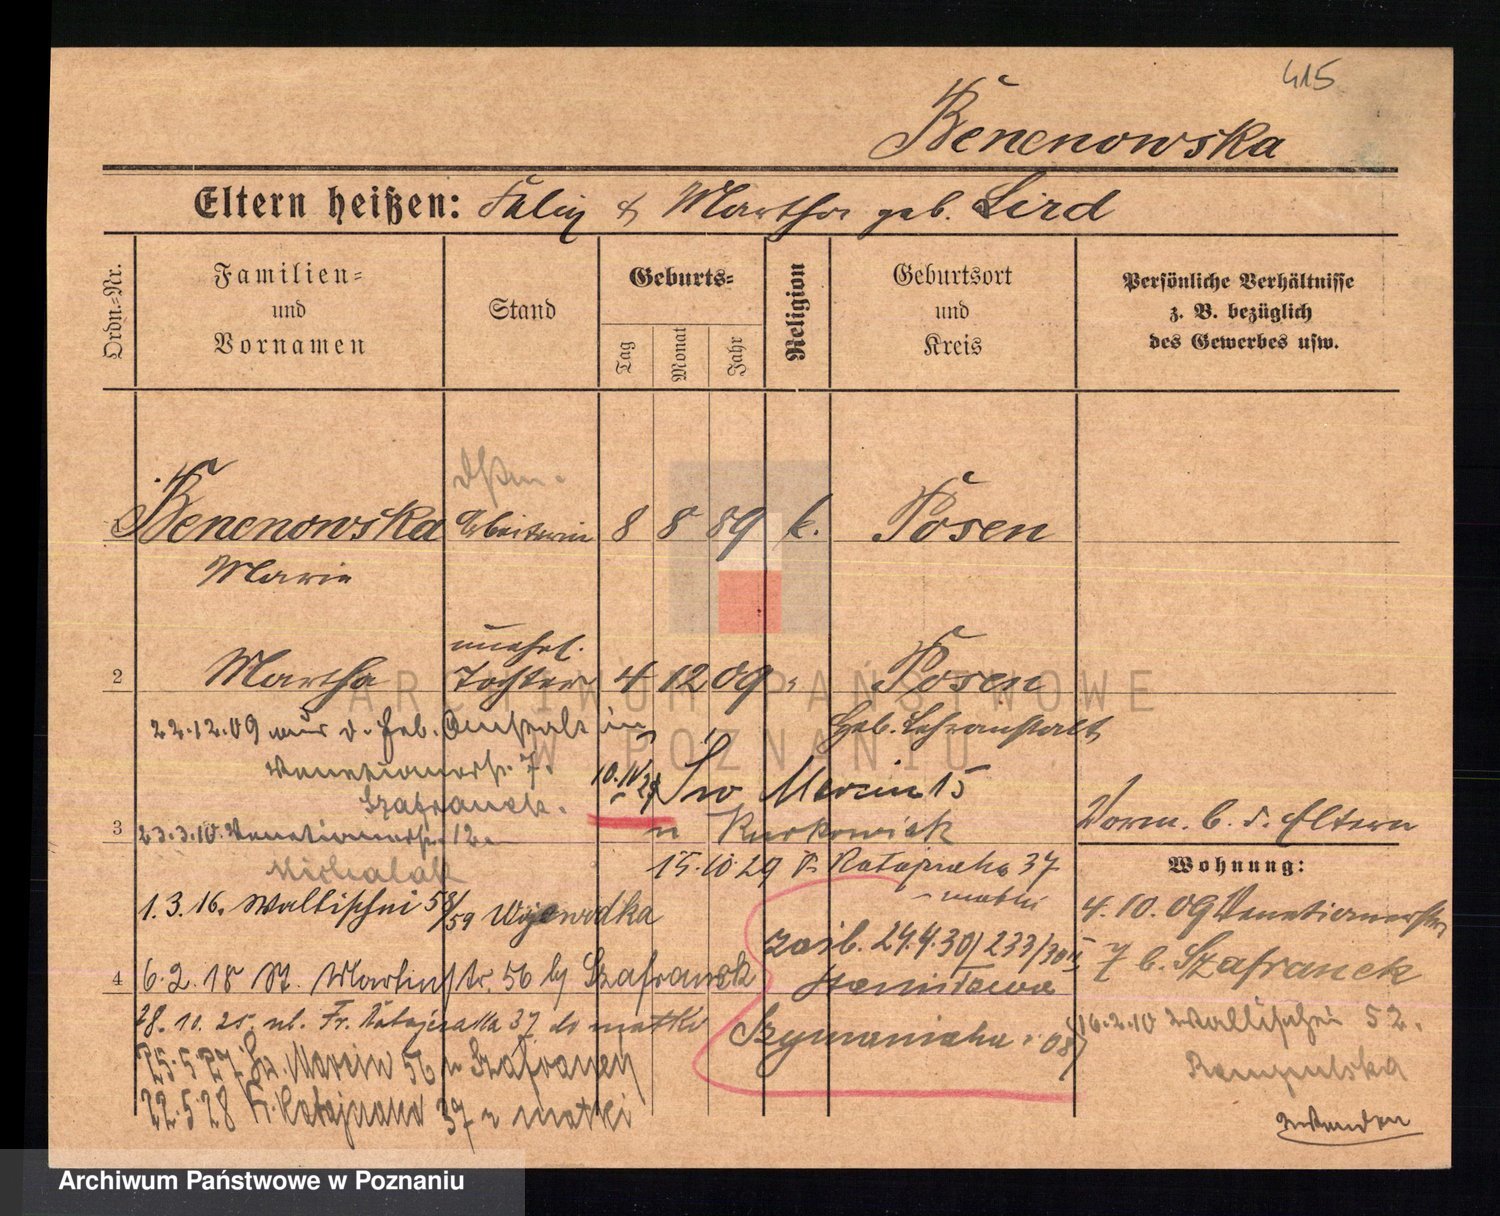 415
Benenowska
Eltern heißen: Felix & Martha geb. Lird
Ordn.-Nr.
Familien-
und
Vornamen
Stand
Geburts-
Tag
Monat
Jahr
Religion
Geburtsort
und
Kreis
Persönliche Verhältnisse
z. B. bezüglich
des Gewerbes usw.
Benenowska Arbeiterin 8 8 89 k. Posen
Marie
unehel.
2 Martha Tochter 4 12 09 " Posen
22.12.09 aus d. Heb. Anstalt in
Heb. Lehranstalt
Venetianerstr. 7.
Szafranek.
10.IV 29 Św Marcin 15
Vorm. b. d. Eltern
3 23.3.10. Venetianerstr. 12.
u Kurkowiak
Michalak
15.10.29 Fr. Ratajczaka 37
Wohnung:
matki
1.3.16. Wallischei 58/59 Wojewodka
4.10.09 Venetianerstr.
7 b. Szafranek
zaśl. 24.4.30/233/30
4 6.2.18 St. Martinstr. 56 bj Szafranek
Stanisława
28.10.25. ul. Fr. Ratajczaka 37 do matki
Szymaniaka 08
16.2.10 Wallischei 52.
25.5.27 Św. Marcin 56 u Szafranek
22.5.28 Fr. Ratajczaka 37 u matki
wenden
ARCHIWUM PAŃSTWOWE
W POZNANIU
Archiwum Państwowe w Poznaniu